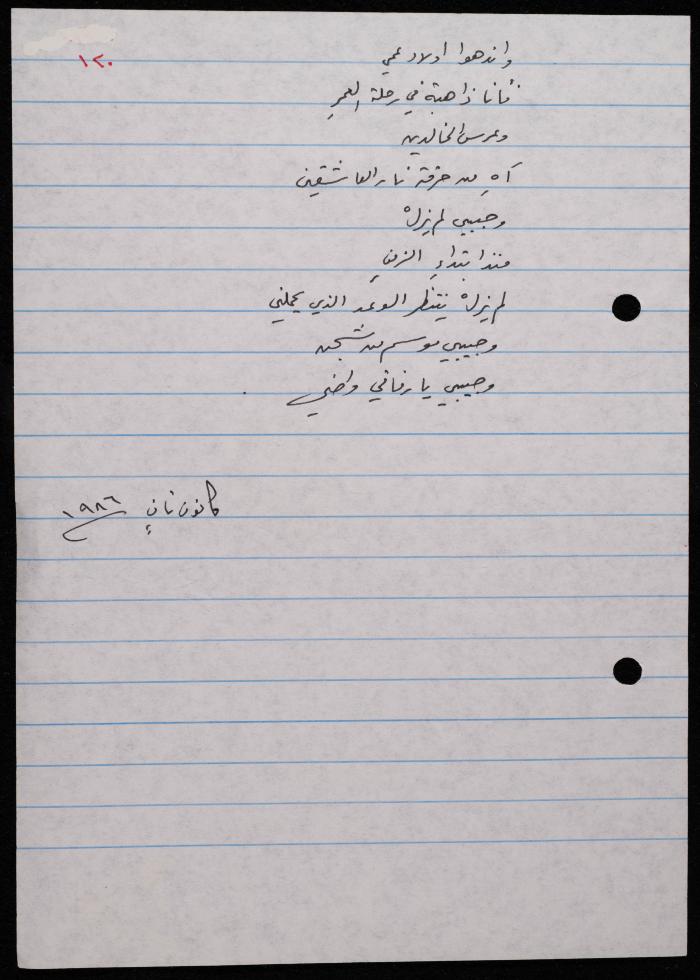 ١٢٠
واندهوا اولاد عمي
فأنا ذاهبة في رحلة العمرِ
وعرس الخالدين
آهِ من حرقة نار العاشقين
وحبيبي لم يزلْ
منذ ابتداءِ الزمنِ
لم يزلْ ينتظر الوعد الذي يحملني
وحبيبي موسم من شجن
وحبيبي يا رفاقي وطني .
كانون ثانٍ ١٩٨٦